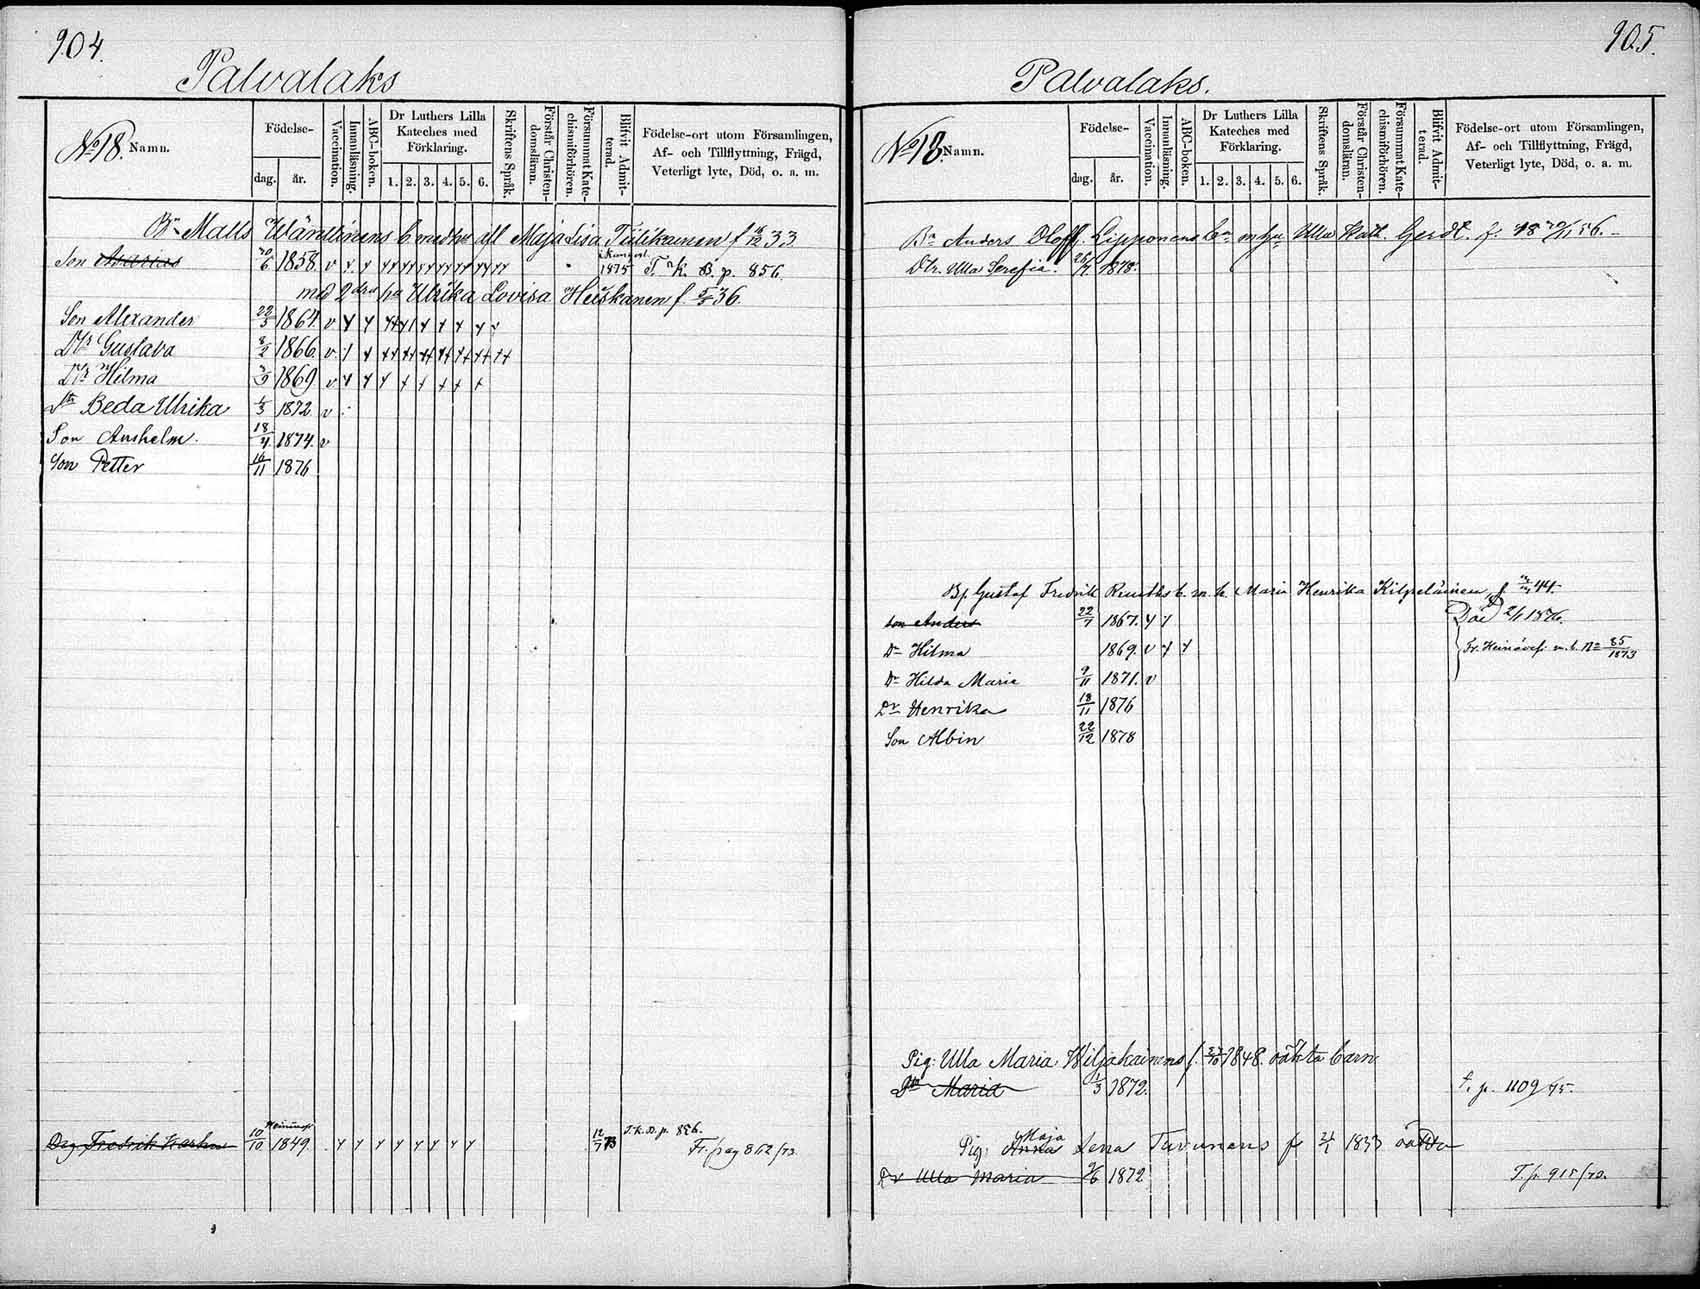 904.
Palvalaks
No 18. Namn.
Födelse-
dag. år.
Vaccination.
Innanläsning.
ABC-boken.
Dr Luthers Lilla Kateches med Förklaring.
1. 2. 3. 4. 5. 6.
Skriftens Språk.
Förstår Christendomsläran.
Försummat Katechismiförhören.
Blifvit Admitterad.
Födelse-ort utom Församlingen, Af- och Tillflyttning, Frägd, Veterligt lyte, Död, o. a. m.
Bn Matts Wänttinens b med hu afl Maja Lisa Tiilikainen f 33
Son 1858 v 1875 T. K. B. p. 856
med 2dra hu Ulrika Lovisa Heiskanen f. 36.
Son Alexander 22/5 1864 v
Dtr Gustava 8/2 1866 v
Dtr Hilma 1869 v
Dtr Beda Ulrika 1/3 1872 v
Son Anshelm. 18/4 1874. v
Son Petter 16/11 1876
Drg Fredrik 10/10 1849. 12/7 73 T. K. B. p. 856.
Fr. pag 862/73.
905.
Palvalaks.
No 18. Namn.
Födelse-
dag. år.
Vaccination.
Innanläsning.
ABC-boken.
Dr Luthers Lilla Kateches med Förklaring.
1. 2. 3. 4. 5. 6.
Skriftens Språk.
Förstår Christendomsläran.
Försummat Katechismiförhören.
Blifvit Admitterad.
Födelse-ort utom Församlingen, Af- och Tillflyttning, Frägd, Veterligt lyte, Död, o. a. m.
Bn Anders Oloff Lipponens bn m hu Ulla Kath. Gerdt. f. 56.
Dtr. Ulla Serefia. 1878.
Gustaf Fredrik b. m. h. Maria Henrika Kilpeläinen, f 44.
son Anders 22/7 1867. Död 1876.
Dr Hilma 1869. v Fr. Heinävesi m. b. No 85/1873
Dr Hilda Maria 9/11 1871. v
Dr Henrika 18/11 1876
Son Albin 22/12 1878
Pig. Ulla Maria Wiljakainens f. 1848. oäkta barn
Dtr Maria 1/3 1872. t. p. 1109/75.
Maja
Pig. Anna Lena Tuvunens f 1853
Dr Ulla Maria 1872 T. p. 915/73.